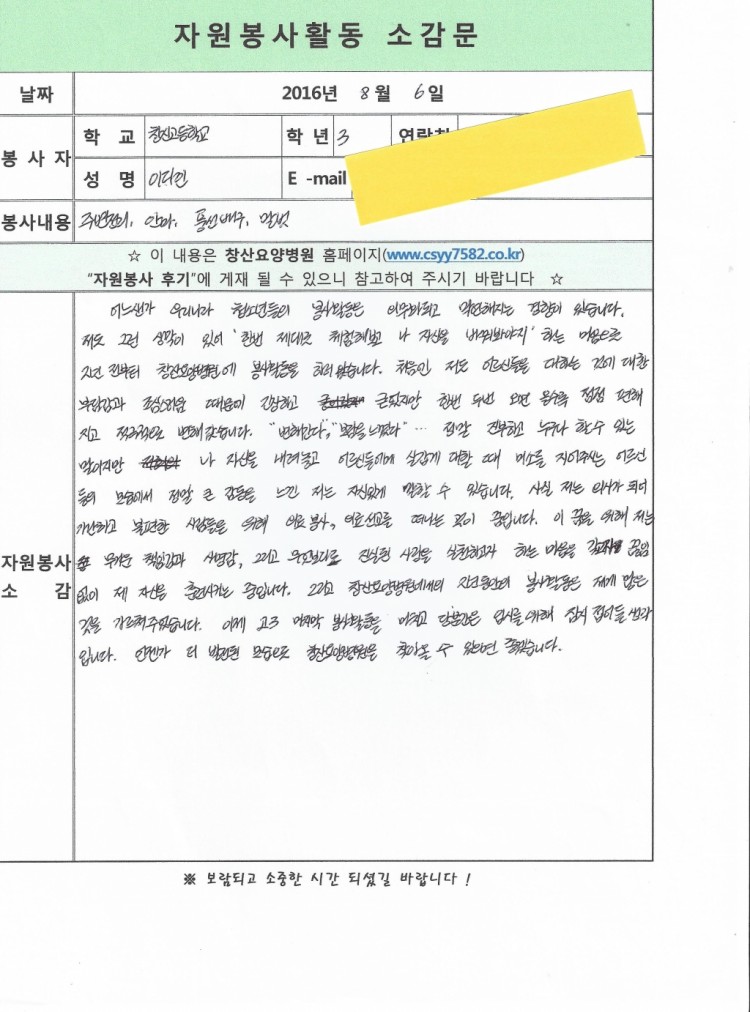 자원봉사활동 소감문
날짜 2016년 8월 6일
봉사자 학 교 창신고등학교 학 년 3
성 명 E-mail
봉사내용 주변정리, 안마, 풍선배구, 말벗
☆ 이 내용은 창산요양병원 홈페이지(www.csyy7582.co.kr)
"자원봉사 후기"에 게재 될 수 있으니 참고하여 주시기 바랍니다 ☆
자원봉사 소 감
어느샌가 우리나라 청소년들의 봉사활동은 의무화되고 막연해지는 경향이 있습니다.
저도 그런 생각이 있어 '한번 제대로 체험해보고 나 자신을 바꿔봐야지' 하는 마음으로
지난 전부터 창산요양병원에 봉사활동을 하러 왔습니다. 처음인 저도 어르신들을 대하는 것에 대한
부담감과 조심스러움 때문에 긴장하고 굳었지만 한번 두번 오면 올수록 점점 편해
지고 적극적으로 변해갔습니다. "변해간다", "보람을 느꼈다" … 정말 진부하고 누구나 할 수 있는
말이지만 나 자신을 내려놓고 어르신들에게 살갑게 대할 때 미소를 지어주시는 어르신
들의 모습에서 정말 큰 감동을 느낀 저는 자신있게 말할 수 있습니다. 사실 저는 의사가 되어
가난하고 불편한 사람들을 위해 의료봉사, 의료선교를 떠나는 것이 꿈입니다. 이 꿈을 위해 저는
무거운 책임감과 사명감, 그리고 무엇보다도 진실된 사랑을 실천하고자 하는 마음을 갖고 끊임
없이 제 자신을 훈련시키는 중입니다. 그리고 창산요양병원에서의 지난 동안의 봉사활동은 제게 많은
것을 가르쳐주었습니다. 이제 고3 마지막 봉사활동을 마치고 당분간은 입시를 위해 잠시 접어둘 생각
입니다. 언젠가 더 발전된 모습으로 창산요양병원을 찾아올 수 있으면 좋겠습니다.
※ 보람되고 소중한 시간 되셨길 바랍니다 !